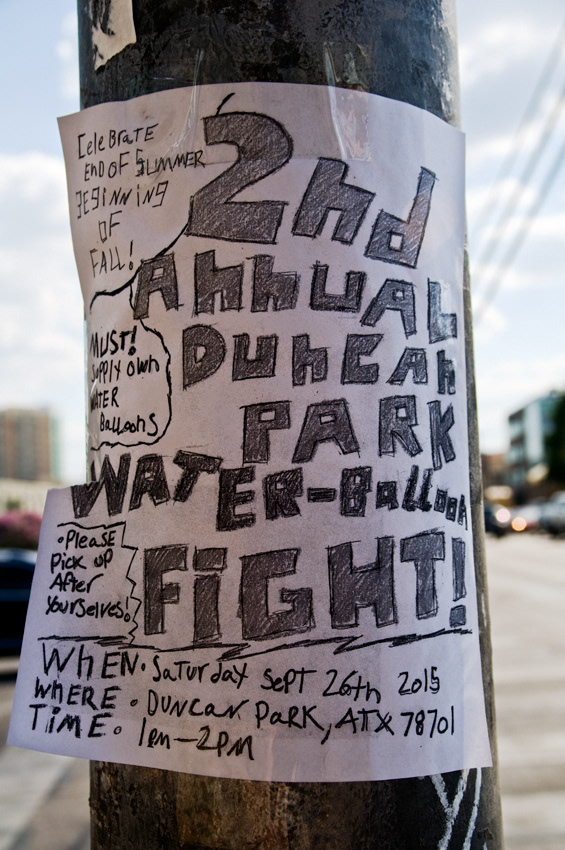 Celebrate
End of Summer
Beginning
of
Fall!
2nd
Annual
Duncan
Park
Water-Balloon
Fight!
Must!
Supply own
Water
Balloons
•Please
Pick up
After
Yourselves!
When• Saturday Sept 26th 2015
Where• Duncan Park, ATX 78701
Time• 1pm—2pm